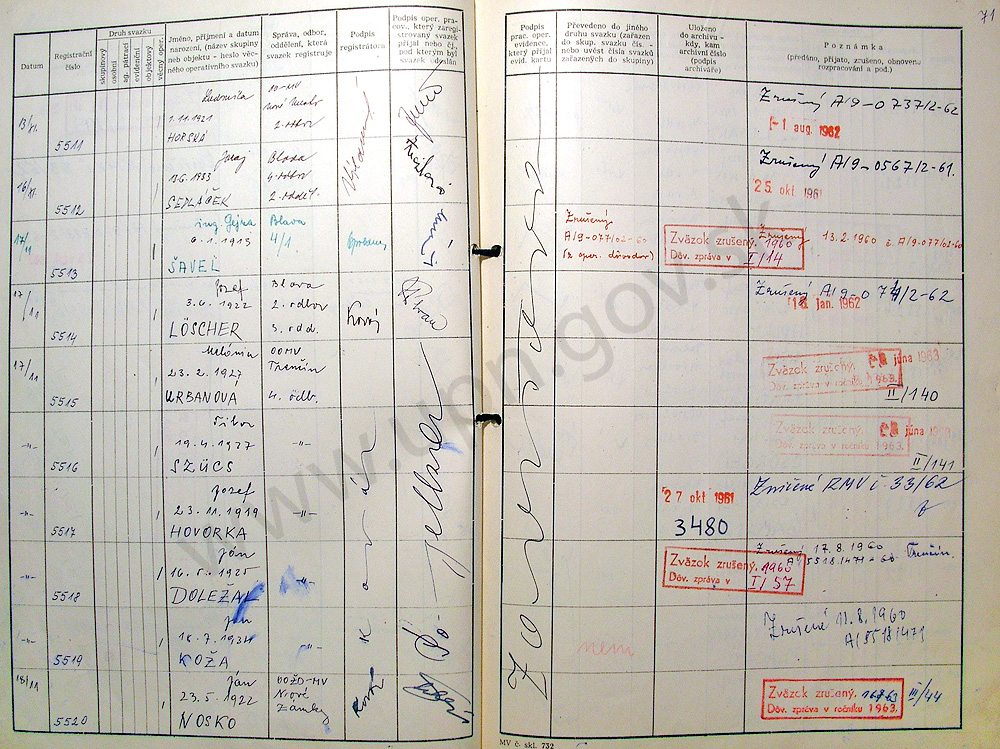 71
Datum
Registrační číslo
Druh svazku
skupinový
osobní
ag. pátrací
evidenční
objektový
věcný oper.
Jméno, příjmení a datum
narození, (název skupiny
neb objektu - heslo věc-
ného operativního svazku)
Správa, odbor,
oddělení, která
svazek registruje
Podpis
registrátora
Podpis oper. pra-
cov., který zaregi-
strovaný svazek
přijal nebo čj.,
pod kterým byl
svazek odeslán
Podpis
prac. oper.
evidence,
který přijal
evid. kartu
Převedeno do jiného
druhu svazku (zařazen
do skup. svazku čís. -
nebo uvést čísla svazků
zařazených do skupiny)
Uloženo
do archivu -
kdy, kam
archivní číslo
(podpis
archiváře)
Poznámka
(předáno, přijato, zrušeno, obnoveno
rozpracování a pod.)
Ludmila
1.11.1921
HORSKÁ
5511
2. odbor
Zrušený A/9-0737/2-62
-1 aug. 1962
Juraj
Blava
13.6.1933
4. odbor
SEDLÁČEK
2. oddel.
5512
Zrušený A/9-0567/2-61.
25. okt. 1961
17/11
ing. Gejza
Blava
6.1.1913
4/1.
ŠAVEL
5513
Zrušený
A/9-077/02-60
(z oper. dôvodov)
Zväzok zrušený. 1960
Dôv. zpráva v I/14
Zrušený 13.2.1960 č. A/9-077/02-60
17/11
Jozef
Blava
3.6.1922
2. odbor
LÖSCHER
3. odd.
5514
18. jan. 1962
17/11
Melánia
OOMV
Trenčín
23.2.1927
URBANOVÁ
4. odb.
5515
Zväzok zrušený.
júna 1963
Dôv. zpráva v ročníku 1963.
II/140
-"-
Tibor
-"-
19.4.1927
SZÜCS
5516
Zväzok zrušený.
júna 1963
Dôv. zpráva v ročníku 1963.
II/141
-"-
Jozef
-"-
23.11.1919
HOVORKA
5517
27 okt 1961
3480
Zničené RMV č 33/62
-"-
Ján
-"-
16.5.1925
DOLEŽAL
5518
Zväzok zrušený. 1960
Dôv. zpráva v I/57
Zrušený 17.8.1960 Trenčín.
-"-
Ján
-"-
18.7.1934
KOŽA
5519
není
Zrušené 11.8.1960
A/5518/1471
18/11
Ján
OOŽD-MV
Nové
Zámky
23.5.1922
NOSKO
5520
Zväzok zrušený.
Dôv. zpráva v ročníku 1963.
III/44
MV č. skl. 732
www.upn.gov.sk